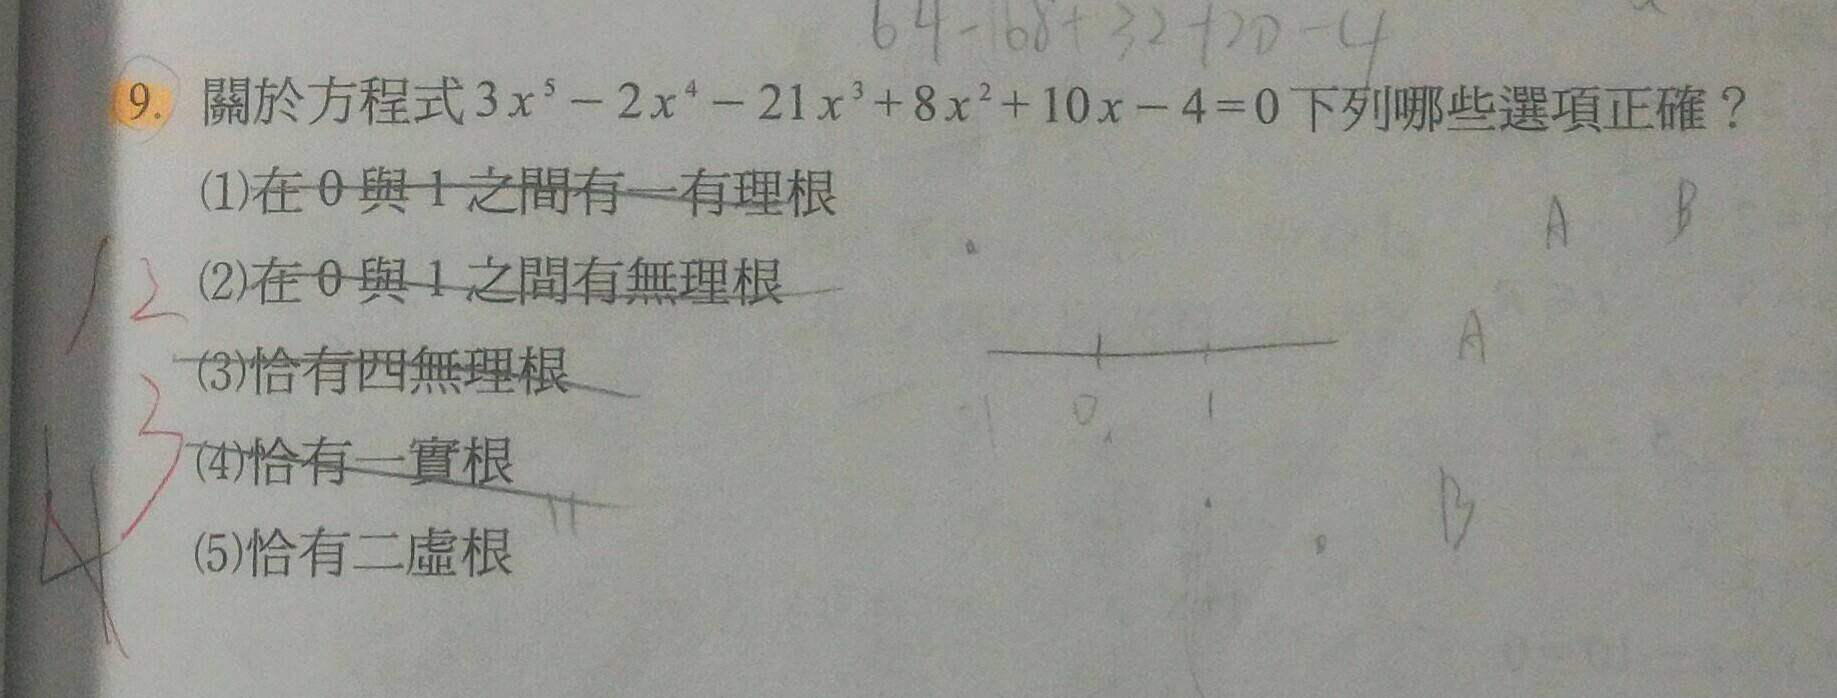 64-168+32+20-4
9. 關於方程式3x⁵－2x⁴－21x³＋8x²＋10x－4＝0下列哪些選項正確？
(1)在 0 與 1 之間有一有理根
A B
(2)在 0 與 1 之間有無理根
12
A
(3)恰有四無理根
-1 0 1
3
(4)恰有一實根
4
B
(5)恰有二虛根